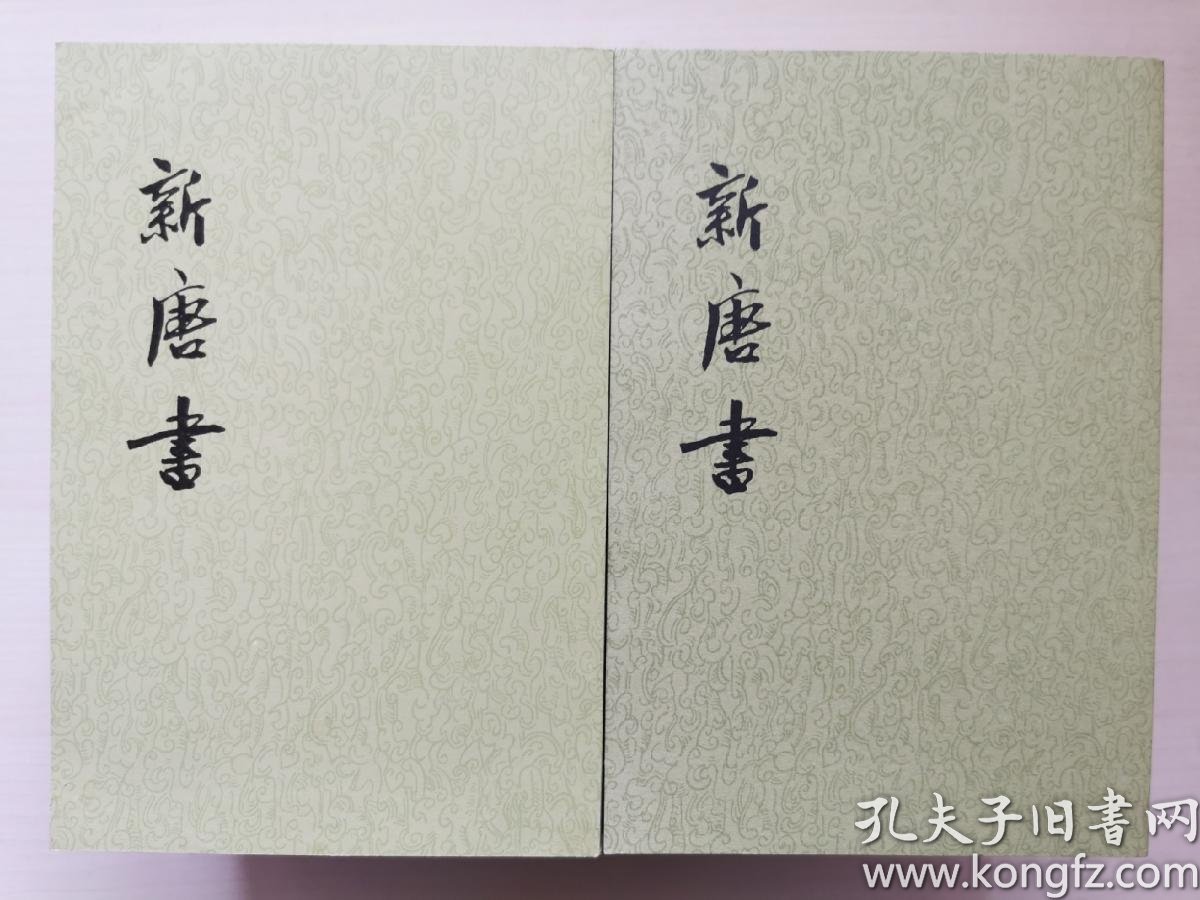 新唐書
新唐書
孔夫子旧書网
www.kongfz.com